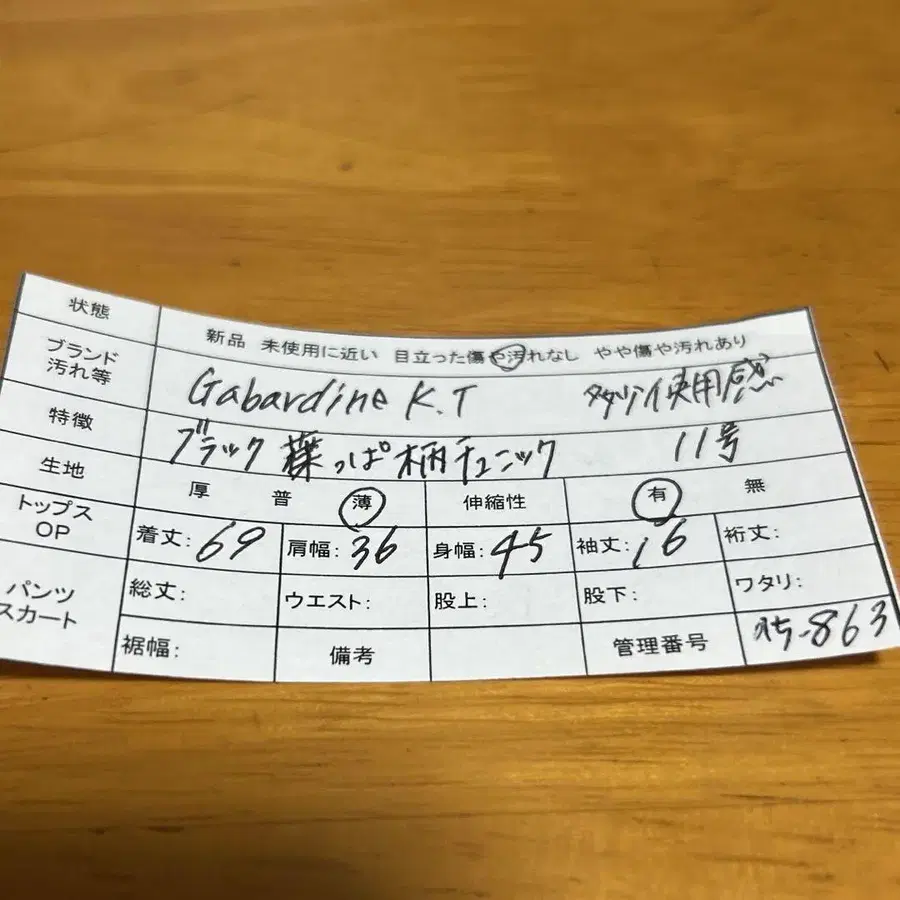 状態 新品 未使用に近い 目立った傷や汚れなし やや傷や汚れあり
ブランド
汚れ等 Gabardine K.T 使用感
特徴 ブラック 葉っぱ柄チュニック 11号
生地 厚 普 薄 伸縮性 有 無
トップス
OP 着丈:69 肩幅:36 身幅:45 袖丈:16 裄丈:
パンツ
スカート 総丈: ウエスト: 股上: 股下: ワタリ:
裾幅: 備考 管理番号 -863